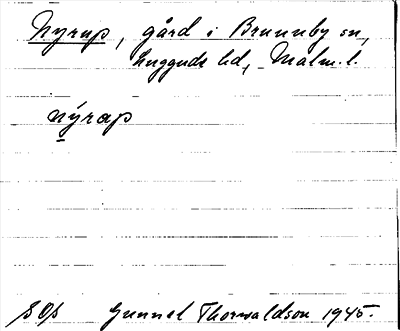 Nyrup, gård i Brunnby sn,
Luggude hd, Malm. l.
nýrap
Gunnel Thorwaldson 1945.